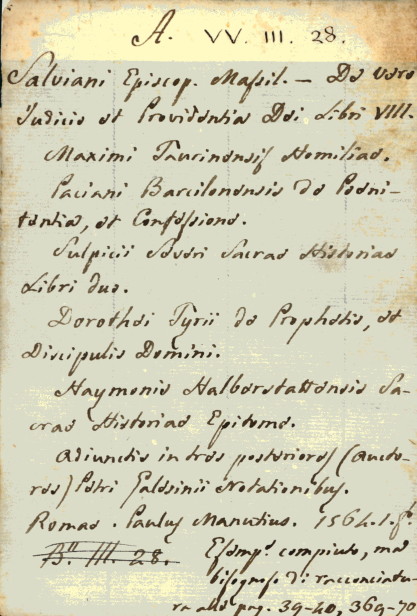 A. VV. III. 28.
Salviani Episcop. Massil. — De vero
Judicio et Providentia Dei Libri VIII.
Maximi Taurinensis Homiliae.
Paciani Barcilonensis de Poeni-
tentia, et Confessione.
Sulpicii Severi Sacrae Historiae
Libri duo.
Dorothei Tyrii de Prophetis, et
Discipulis Domini.
Haymonis Halberstattensis Sa-
crae Historiae Epitome.
Adiunctis in tres posteriores (Aucto-
res) Petri Galesinii Notationibus.
Romae. Paulus Manutius. 1564. 1. f.º
B.ª III. 28. Esemp.e compiuto, ma
bisognoso di racconciatu-
ra alle pag. 39-40, 369-70